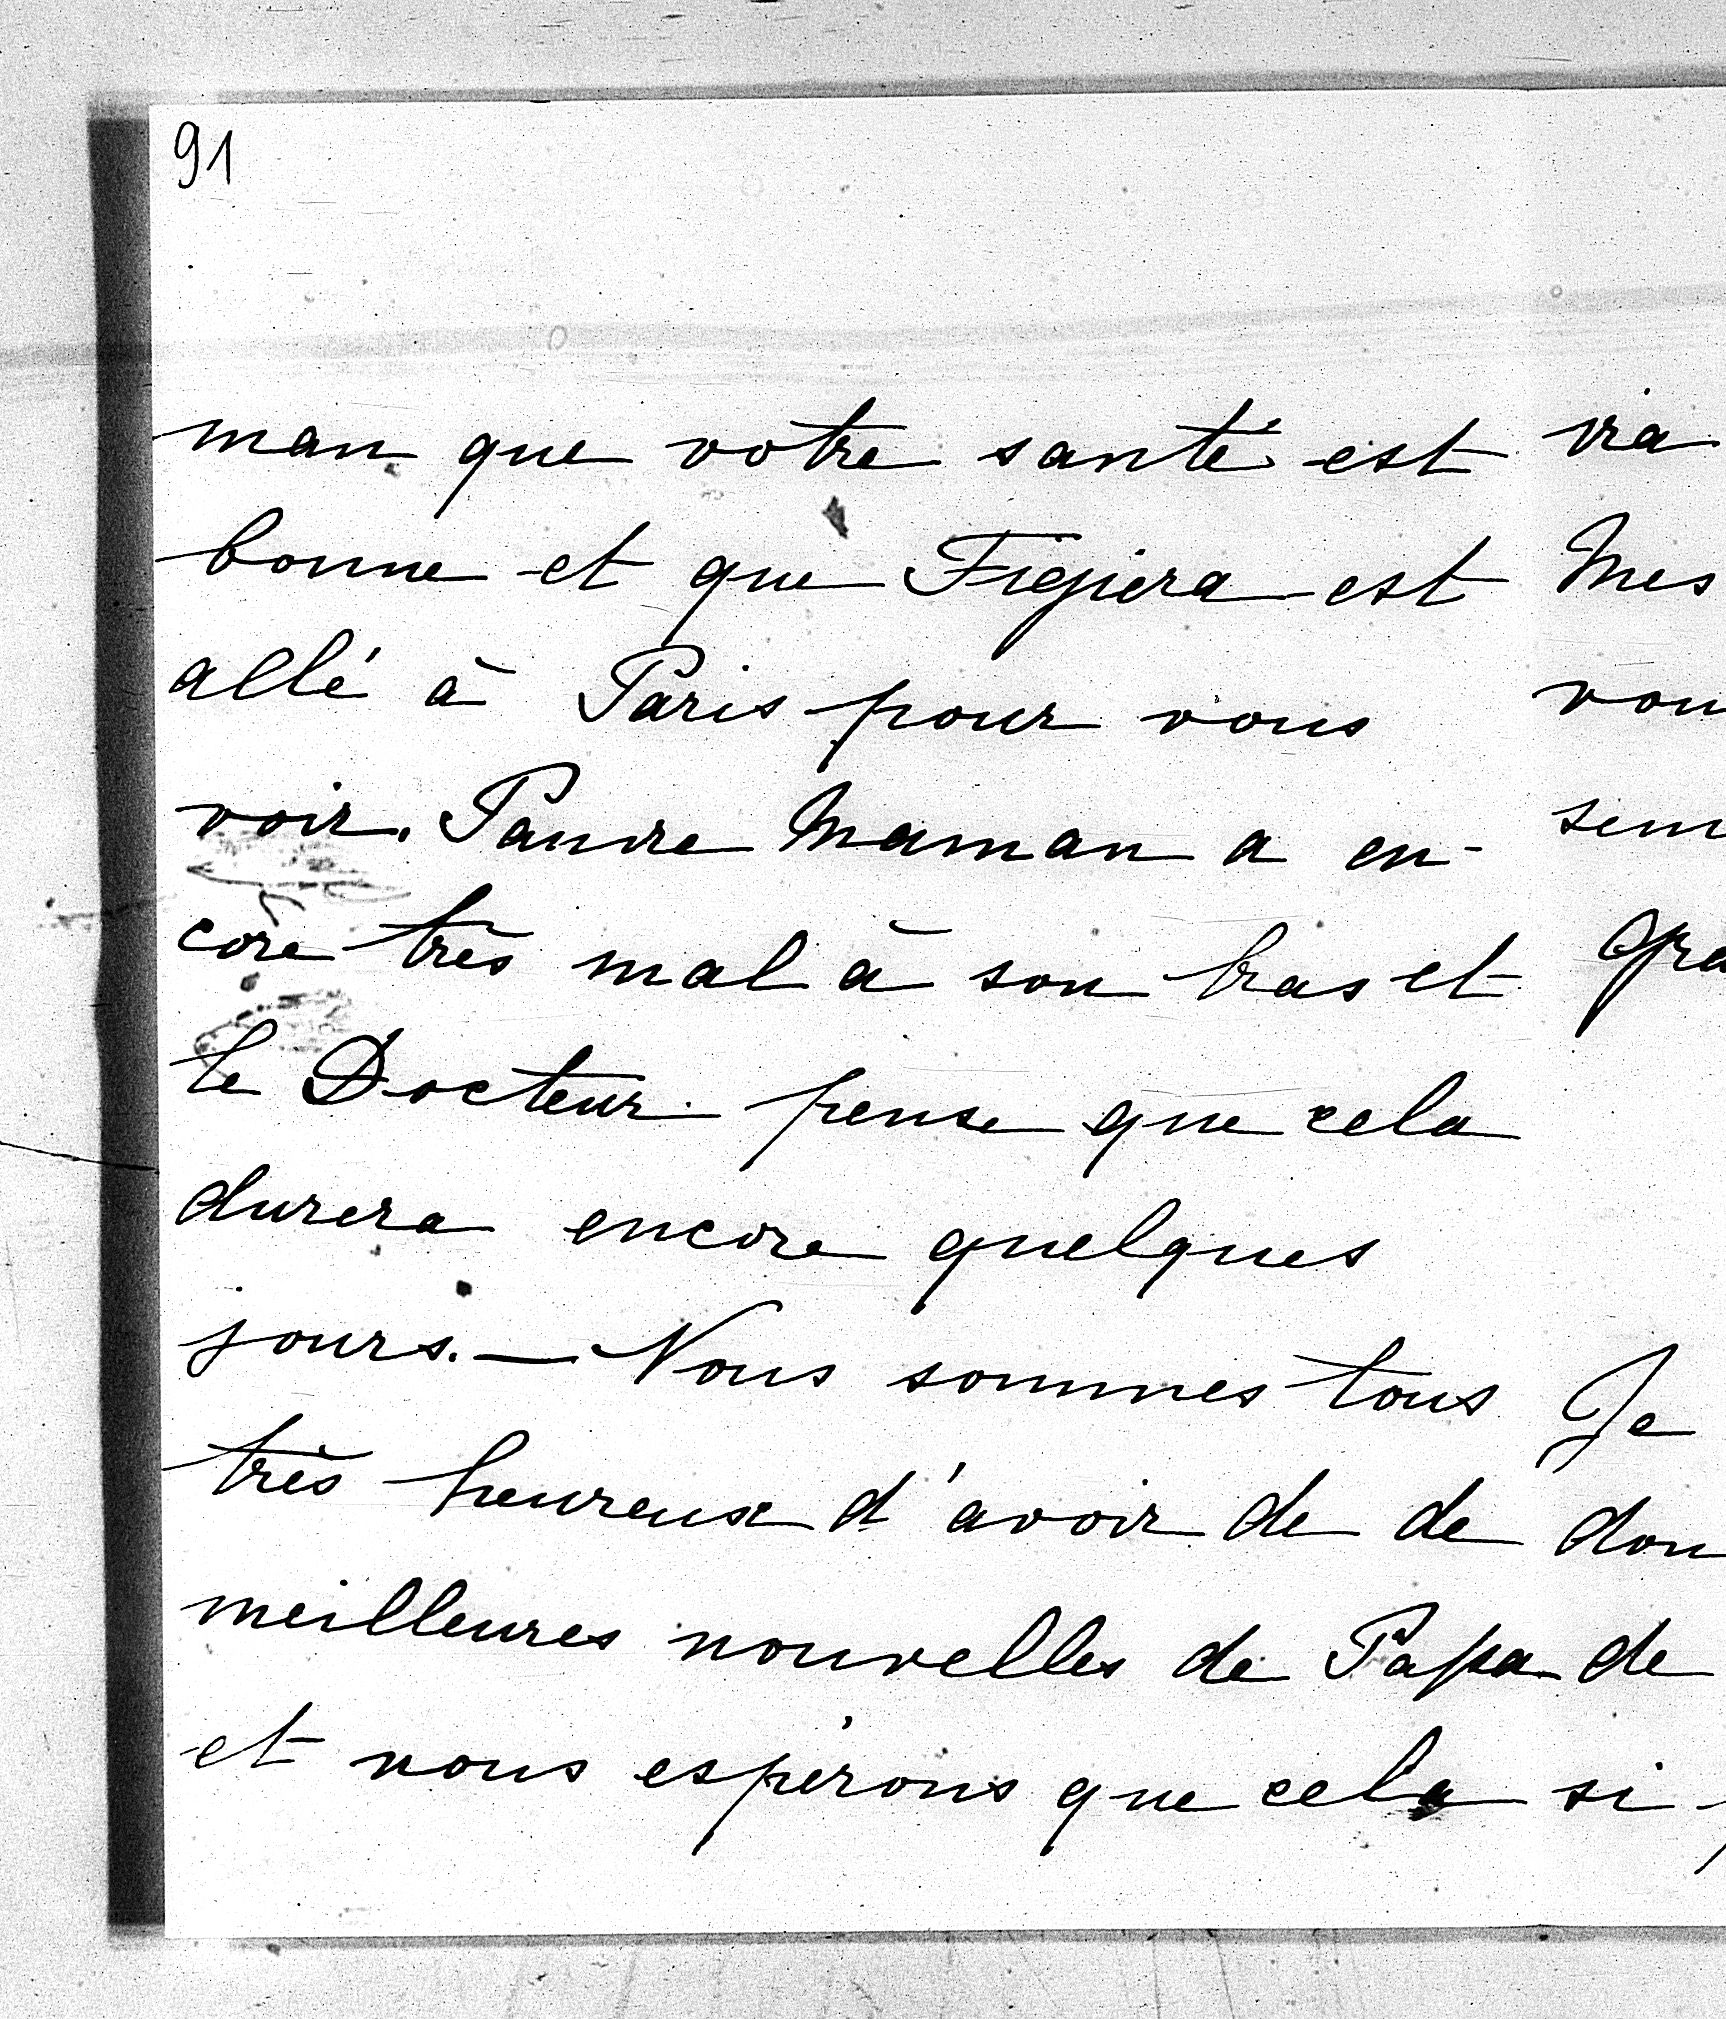 91
man que votre santé est
bonne et que Figiera est
allé à Paris pour vous
voir. Pauvre Maman a en-
core très mal à son bras et
le Docteur pense que cela
durera encore quelques
jours. — Nous sommes tous
très heureux d'avoir de de
meilleures nouvelles de Papa
et nous espérons que cela
via
Mes
vou
sem
gra
Je
don
de
si